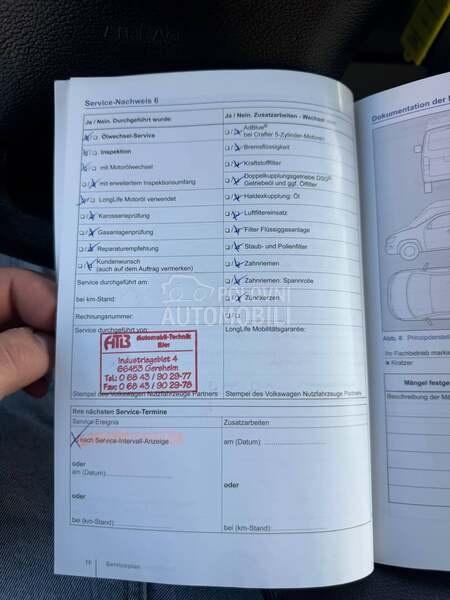 Service-Nachweis 6
Ja / Nein. Durchgeführt wurde:
Ölwechsel-Service
Inspektion
mit Motorölwechsel
mit erweitertem Inspektionsumfang
LongLife Motoröl verwendet
Karosserieprüfung
Gasanlagenprüfung
Reparaturempfehlung
Kundenwunsch
(auch auf dem Auftrag vermerken)
Service durchgeführt am:
bei km-Stand:
Rechnungsnummer:
Service durchgeführt von:
ATB Automobil-Technik
Industriegebiet 4
66453 Gersheim
Tel: 0 68 43 / 90 29-77
Fax: 0 68 43 / 90 29-78
Stempel des Volkswagen Nutzfahrzeuge Partners
Ja / Nein. Zusatzarbeiten - Wechsel von:
AdBlue®
bei Crafter 5-Zylinder-Motoren
Bremsflüssigkeit
Kraftstofffilter
Doppelkupplungsgetriebe DSG®
Getriebeöl und ggf. Ölfilter
Haldexkupplung: Öl
Luftfiltereinsatz
Filter Flüssiggasanlage
Staub- und Pollenfilter
Zahnriemen
Zahnriemen: Spannrolle
Zündkerzen
LongLife Mobilitätsgarantie:
Stempel des Volkswagen Nutzfahrzeuge Partners
Ihre nächsten Service-Termine
Service-Ereignis
nach Service-Intervall-Anzeige
oder
am (Datum):
oder
bei (km-Stand):
Zusatzarbeiten
am (Datum):
oder
bei (km-Stand):
Serviceplan
Dokumentation der
Abb. 8
Ihr Fachbetrieb
Kratzer
Mängel
Beschreibung der
POLOVNI
AUTOMOBILI